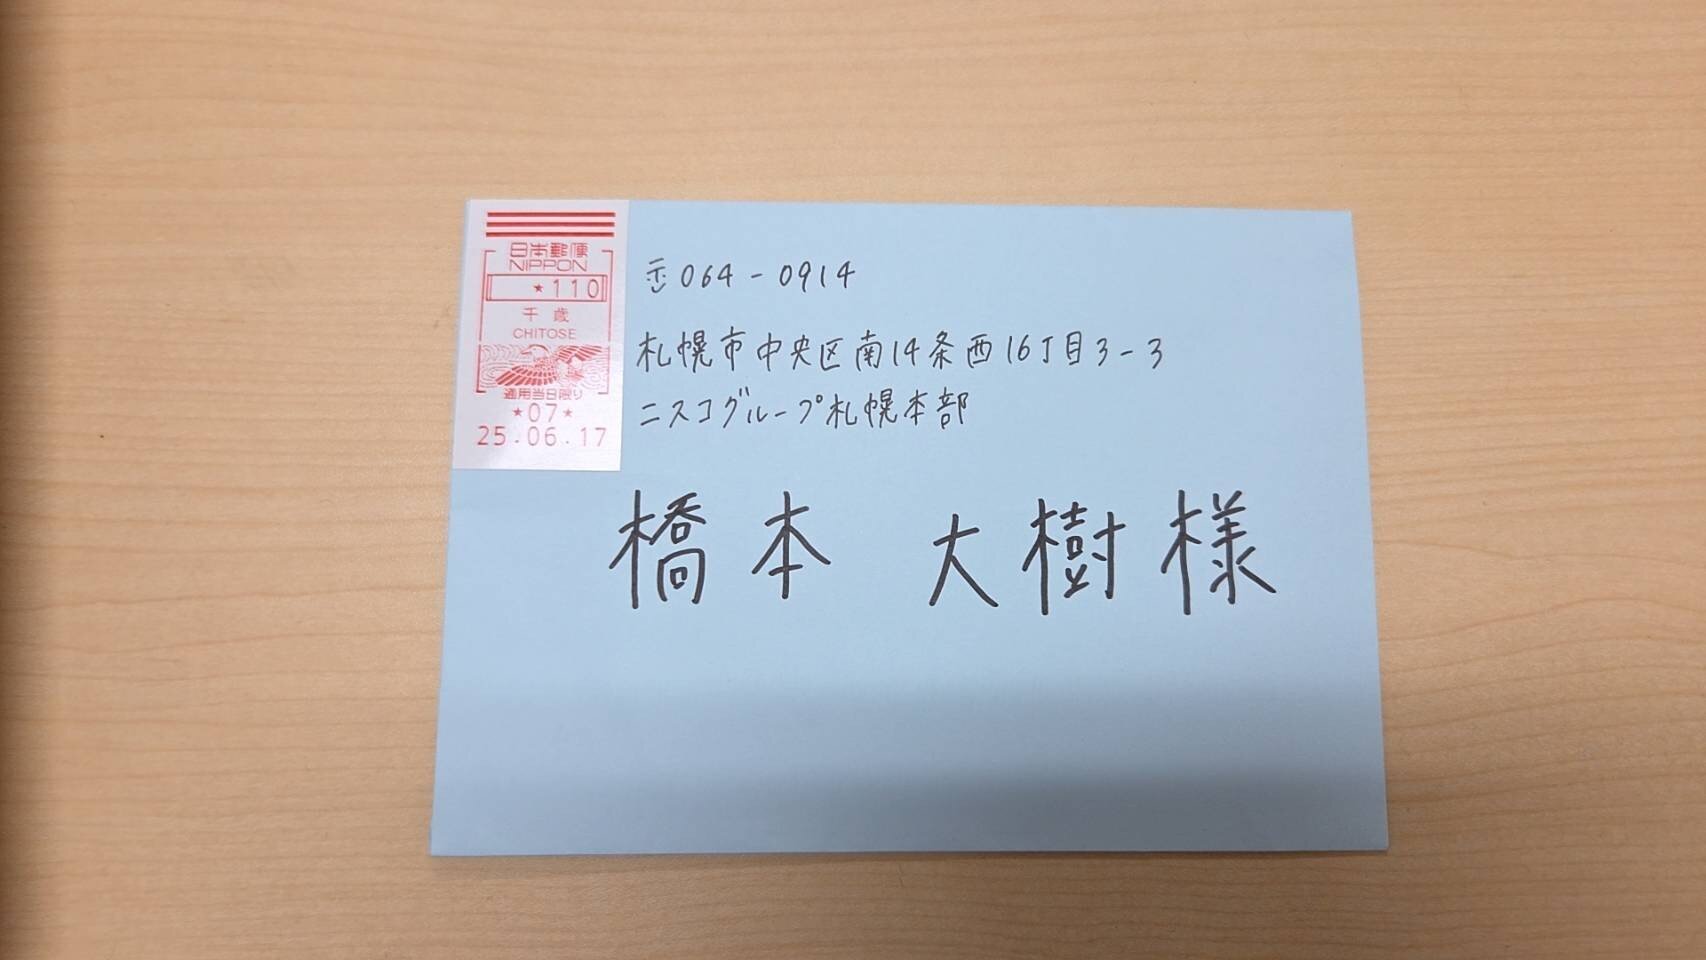 日本郵便
NIPPON
★110
千歳
CHITOSE
通用当日限り
★07★
25.06.17
〒064-0914
札幌市中央区南14条西16丁目3-3
ニスコグループ札幌本部
橋本 大樹様